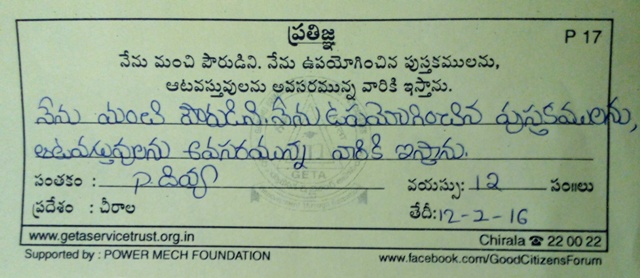 ప్రతిజ్ఞ
P 17
నేను మంచి పౌరుడిని. నేను ఉపయోగించిన పుస్తకములను,
ఆటవస్తువులను అవసరమున్న వారికి ఇస్తాను.
నేను మంచి పౌరుడిని. నేను ఉపయోగించిన పుస్తకములను,
ఆటవస్తువులను అవసరమున్న వారికి ఇస్తాను.
GETA
సంతకం : P. దివ్య వయస్సు: 12 సం॥లు
ప్రదేశం : చీరాల తేదీ: 12-2-16
www.getaservicetrust.org.in Chirala ☎ 22 00 22
Supported by : POWER MECH FOUNDATION www.facebook.com/GoodCitizensForum